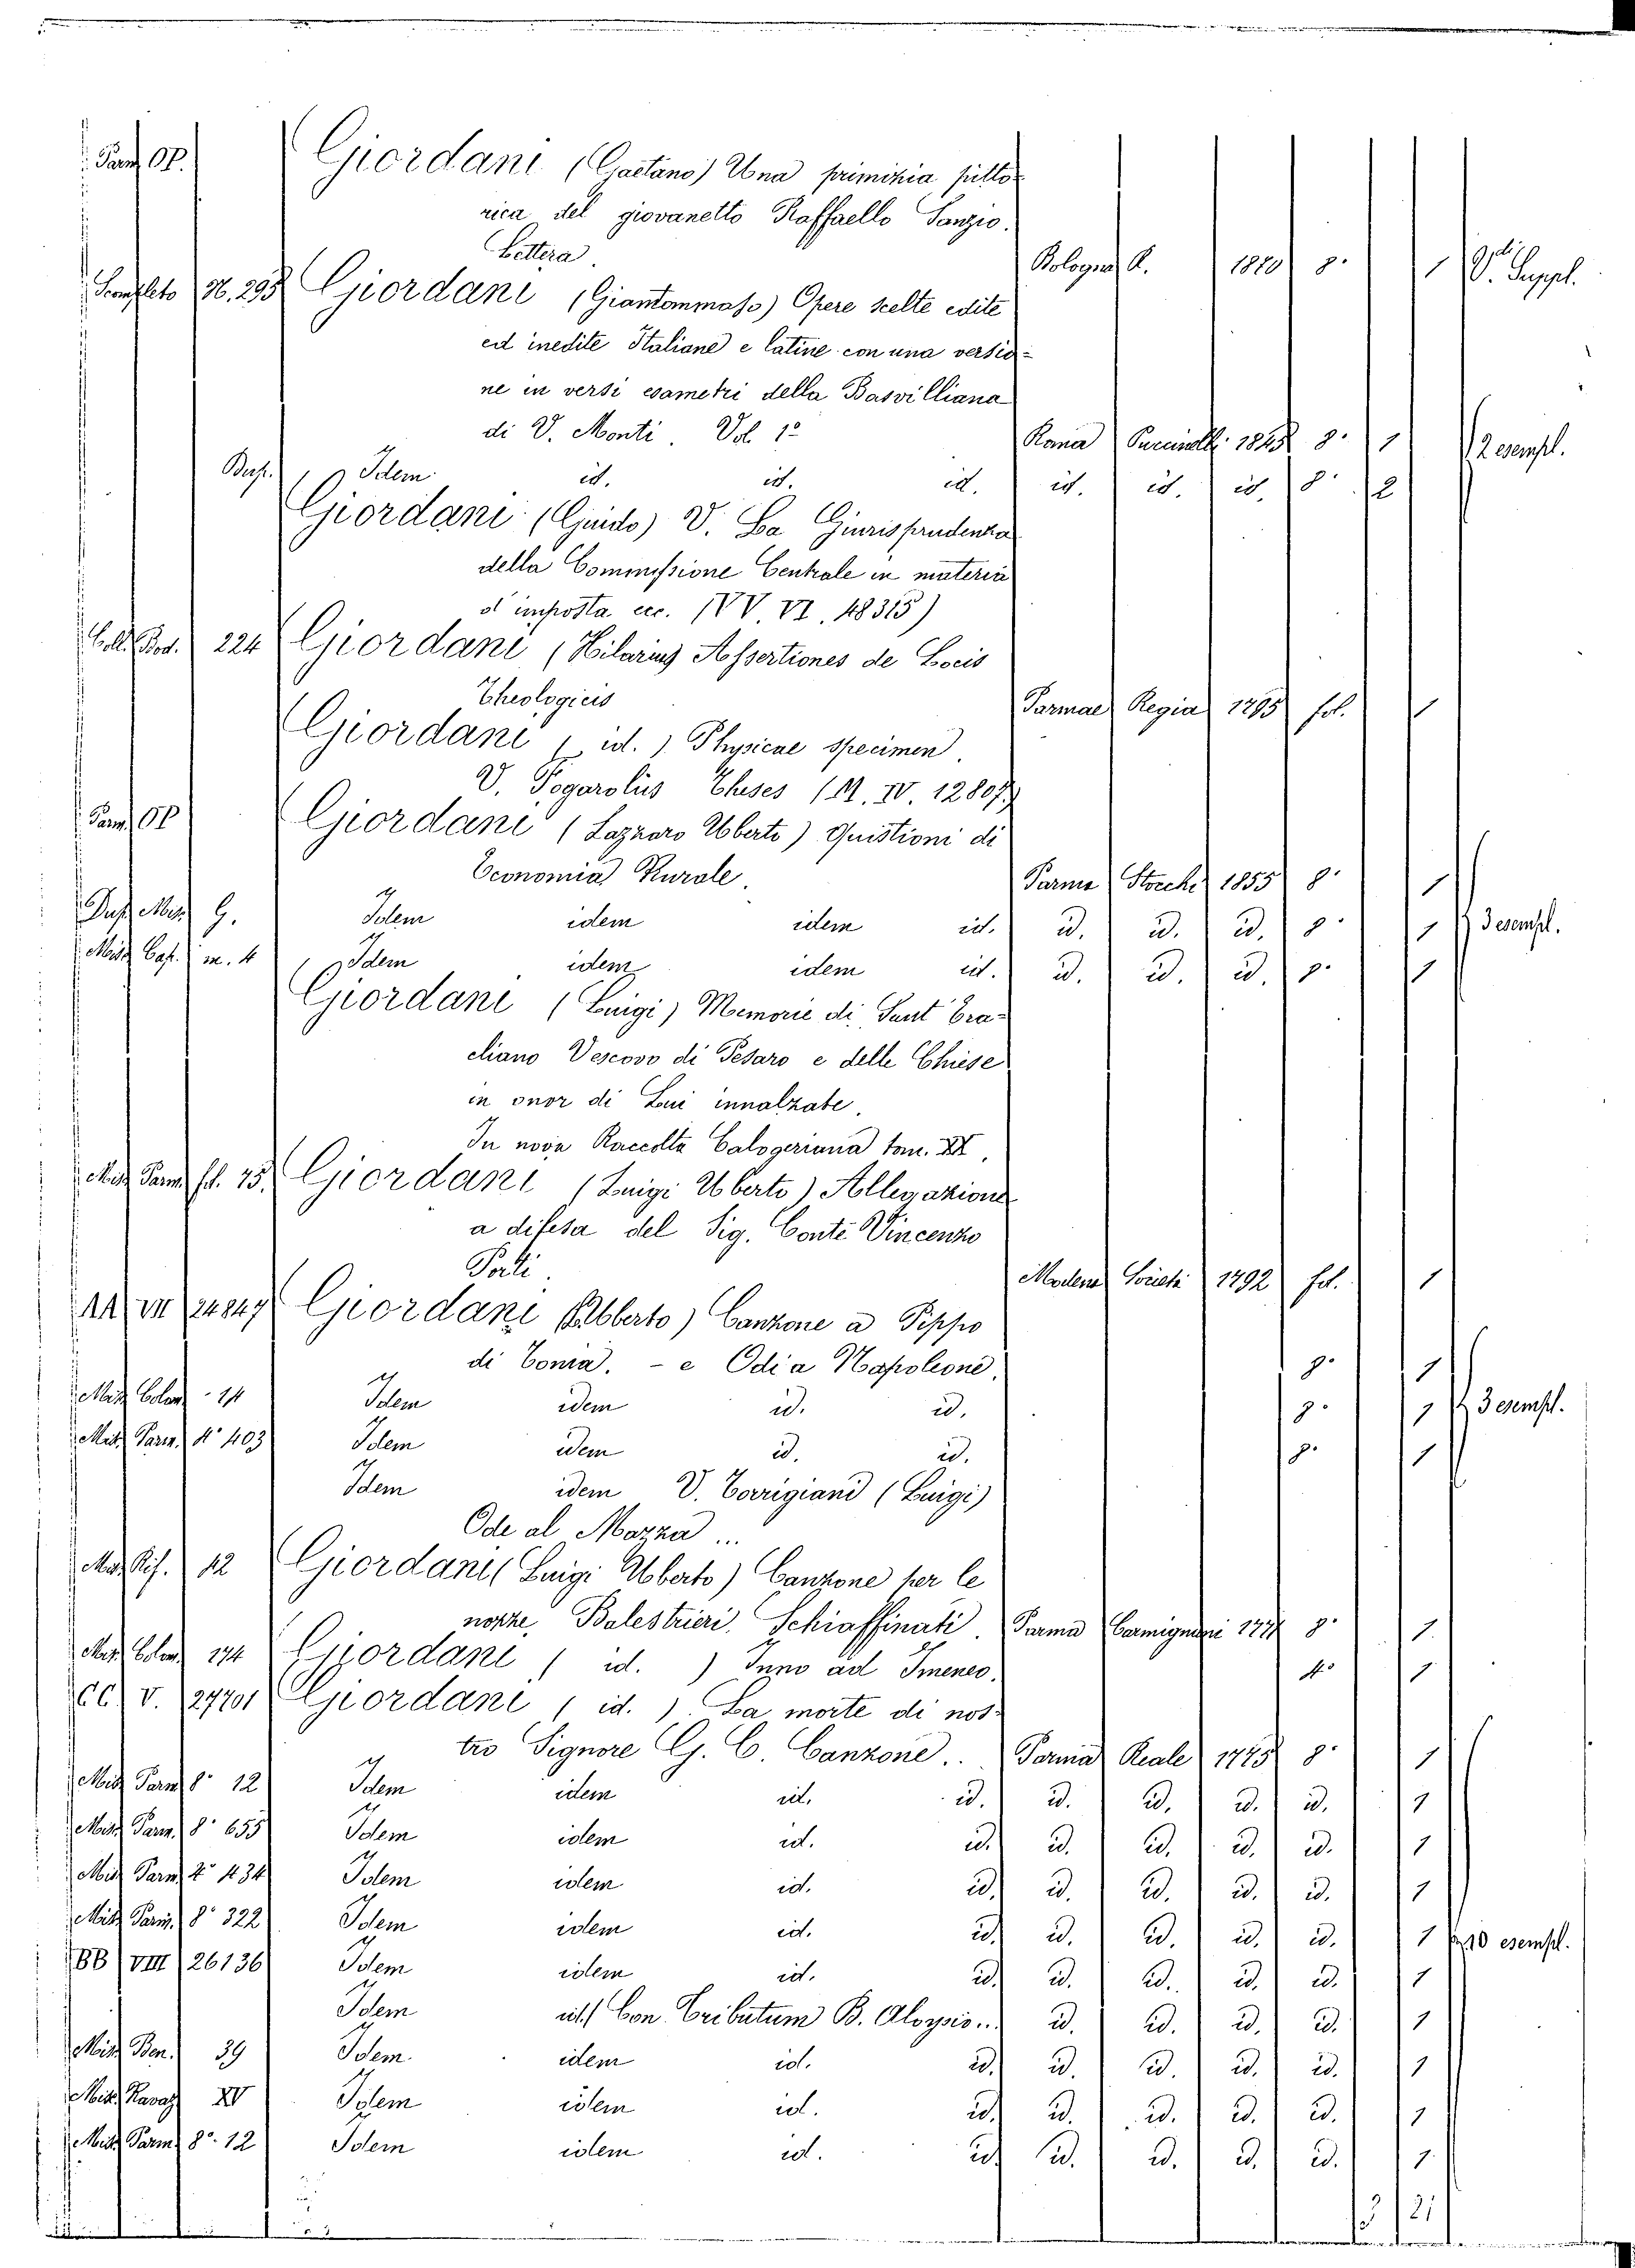 Parm. OP. Giordani (Gaetano) Una primizia pitto-
rica del giovanetto Raffaello Sanzio.
Lettera. Bologna 8. 1 V. Suppl.
N. 295 Giordani (Giantommaso) Opere scelte edite
ed inedite Italiane e latine con una versio-
ne in versi esametri della Basvilliana
di V. Monti. Vol. 1º 8. 1 2 esempl.
Idem id. id. id. id. id. id. 8. 2
Giordani (Guido) V. La Giurisprudenza
della Commissione Centrale in materia
d'imposta ecc. (VV. VI. 48315)
224 Giordani (Hilarius) Assertiones de Locis
Theologicis Parmae Regia 1795 fol. 1
Giordani (id.) Physicae specimen
V. Pogarolius Theses (M. IV. 12807)
Parm. OP Giordani (Lazzaro Uberto) Quistioni di
Economia Rurale. Parma 1855 8. 1
G. Idem idem idem id. id. id. id. 8. 1 3 esempl.
m. 4 Idem idem idem id. id. id. id. 8. 1
Giordani (Luigi) Memorie di Sant
diano Vescovo di Pesaro e delle Chiese
in onor di Lui innalzate.
In nova Raccolta Calogeriana tom.
Misc. Parm. fol. 15. Giordani (Luigi Uberto) Allegazione
a difesa del Sig. Conte Vincenzo
Modena Società 1792 fol. 1
AA VII 24847 Giordani (Uberto) Canzone a Pippo
di Conia. - e Odi a Napoleone. 8. 1
Misc. Colom. 14 Idem idem id. id. 8. 1 3 esempl.
Misc. Parm. 4º 403 Idem idem id. id. 8. 1
Idem idem V. Corrigiani (Luigi)
Ode al Mazza ...
12 Giordani (Luigi Uberto) Canzone per le
nozze Balestrieri. Schiaffinati. Parma Carmignani 8. 1
Misc. Colom. 174 Giordani ( id. ) Inno ad Imeneo. 4º 1
CC. V. 27701 Giordani ( id. ). La morte di nos-
tro Signore G. C. Canzone.. Parma Reale 1775 8. 1
Misc. Parm. 8º 12 Idem idem id. id. id. id. id. id. 1
Misc. Parm. 8º 655 Idem idem id. id. id. id. id. id. 1
Misc. Parm. 4º 434 Idem idem id. id. id. id. id. id. 1
Misc. Parm. 8º 322 Idem idem id. id. id. id. id. id. 1 10 esempl.
BB VIII 26136 Idem idem id. id. id. id. id. id. 1
Idem id. Con Tributum B. Aloysio... id. id. id. id. 1
Misc. Ben. 39 Idem idem id. id. id. id. id. id. 1
Misc. Ravaz. XV Idem idem id. id. id. id. id. id. 1
Misc. Parm. 8º 12 Idem idem id. id. id. id. id. id. 1
3 21